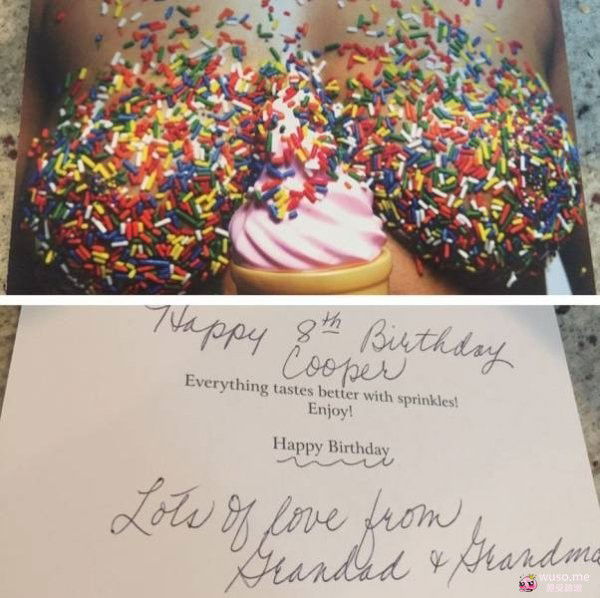 Happy 8th Birthday
Cooper
Everything tastes better with sprinkles!
Enjoy!
Happy Birthday
Lots of love from
Grandad & Grandma
wuso.me